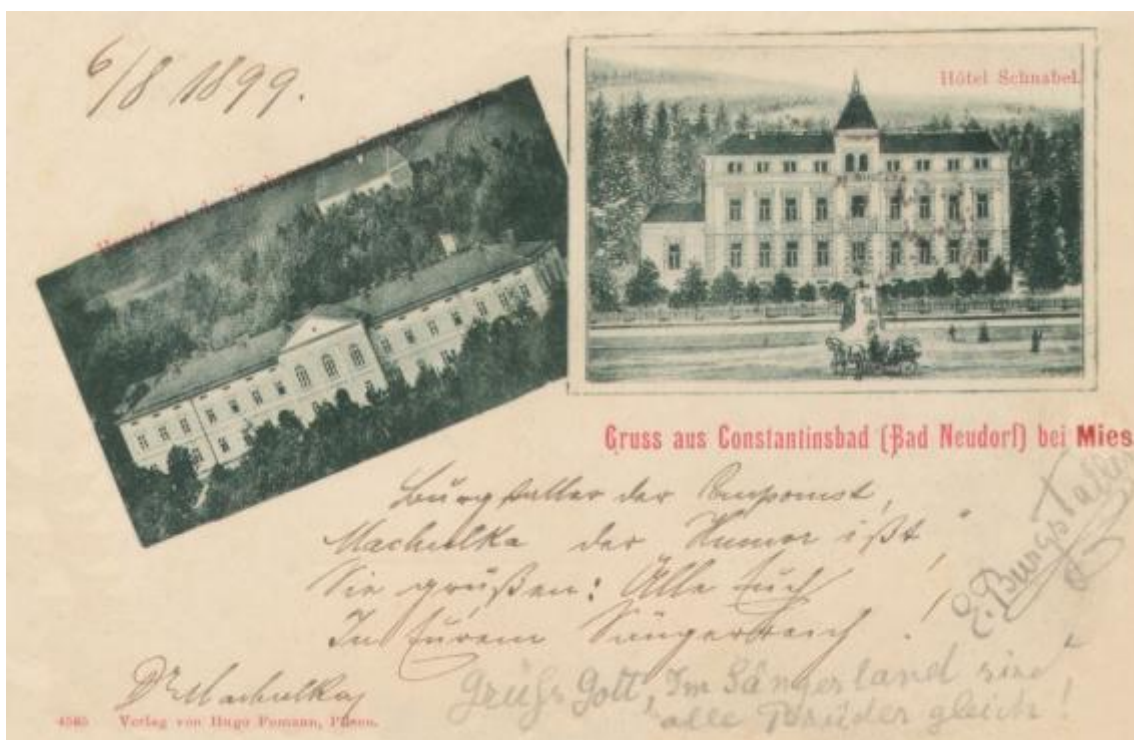 6/8 1899.
Hôtel Schnabel.
Gruss aus Constantinsbad (Bad Neudorf) bei Mies
Burgstaller der
Machulka der Humorißt
Sie grüßen: Alle Euch
In Eurem Sängerreich!
E. Burgstaller
Dr Machulka
Grüß Gott, Im Sängerland sind
alle Brüder gleich!
4565 Verlag von Hugo Pomann, Pilsen.